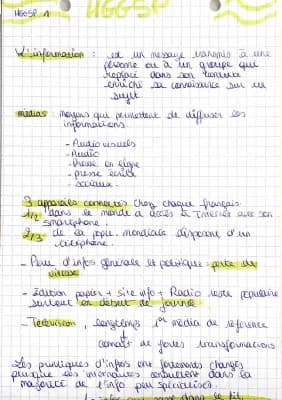 HGGSP
HGGSP 1
L'information : est un message transmis à une
personne ou à un groupe qui
dans son
enrichi sa connaissance sur un
sujet
médias : moyens qui permettent de diffuser les
informations.
- Audio visuels
- Audio
- Presse en ligne
- presse écrite
- sociaux.
3 appareils connectés chez chaque français.
1/2 dans le monde a accès à Internet avec son
smartphone.
2/3 de la popu. mondiale dispose d'un
téléphone.
- Peu d'infos générale et politique : perte de
vitesse
- Édition papier + site info + Radio reste populaire
surtout en début de journée
- Télévision, longtemps 1er média de référence
connaît de fortes transformations
Les pratiques d'infos ont changés
puisque les internautes consultent dans la
majorité de l'info peu spécialisées.